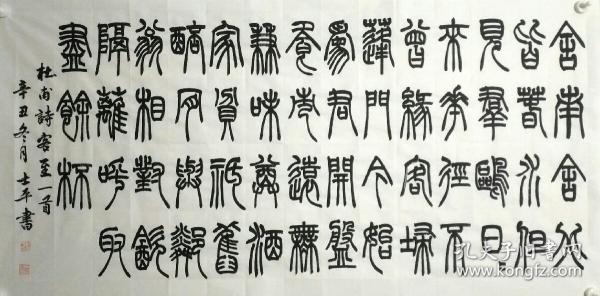 舍南舍北
皆春水但
見羣鷗日〻
來花徑不
曾緣客埽
蓬門今始
爲君開盤
飧市遠無
兼味尊酒
家貧祇舊
醅肯與鄰
翁相對飲
隔籬呼取
盡餘杯
杜甫詩客至一首
辛丑冬月士平書
孔夫子旧书网
www.kongfz.com